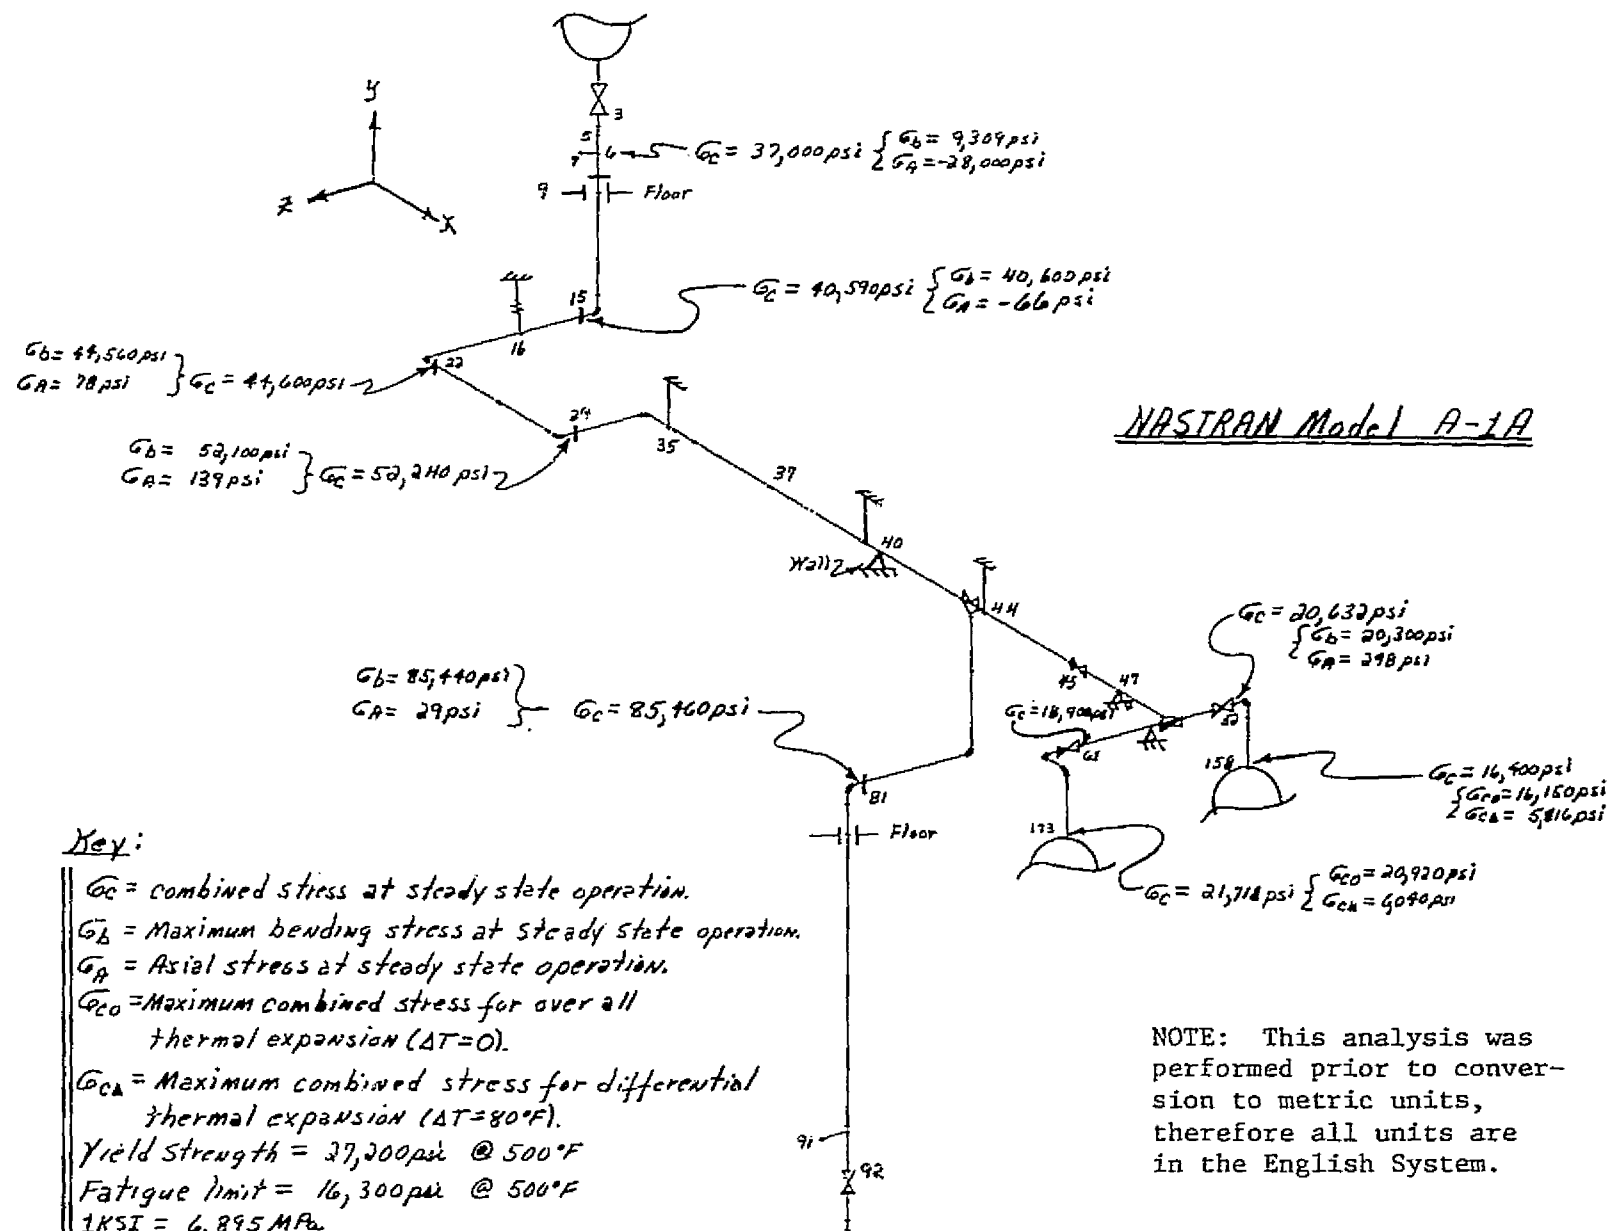 y
z
x
3
5
7 6
σc = 37,000 psi { σb = 9,309 psi
σA = -28,000 psi
9
Floor
15
σc = 40,590 psi { σb = 40,600 psi
σA = -66 psi
16
σb = 44,560 psi
σA = 78 psi } σc = 44,600 psi
22
29
35
NASTRAN Model A-1A
σb = 52,100 psi
σA = 139 psi } σc = 52,240 psi
37
40
Wall
44
σc = 20,632 psi
{ σb = 20,300 psi
σA = 298 psi
45
47
52
σb = 85,440 psi
σA = 29 psi } σc = 85,460 psi
σc = 18,900 psi
63
158
σc = 16,400 psi
{ σco = 16,150 psi
σcΔ = 5,816 psi
81
Floor
173
σc = 21,718 psi { σco = 20,920 psi
σcΔ = 6,040 psi
Key:
σc = combined stress at steady state operation.
σb = Maximum bending stress at steady state operation.
σA = Axial stress at steady state operation.
σco = Maximum combined stress for over all
thermal expansion (ΔT=0).
σcΔ = Maximum combined stress for differential
thermal expansion (ΔT=80°F).
Yield Strength = 27,200 psi @ 500°F
Fatigue limit = 16,300 psi @ 500°F
1KSI = 6.895 MPa
91
92
NOTE: This analysis was
performed prior to conver-
sion to metric units,
therefore all units are
in the English System.